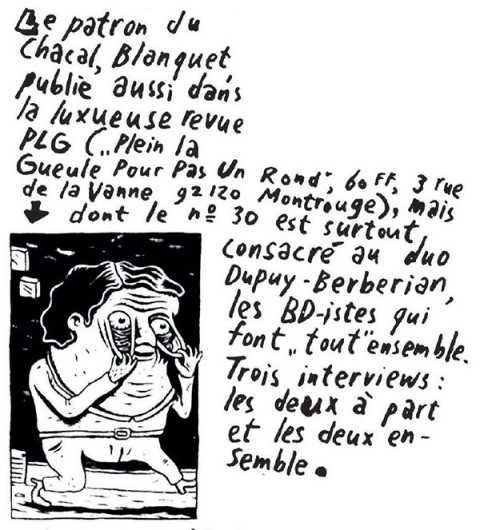 Le patron du
Chacal, Blanquet
publie aussi dans
la luxueuse revue
PLG („Plein la
Gueule Pour Pas Un Rond", 60 FF, 3 rue
de la Vanne 92120 Montrouge), mais
↓ dont le nº 30 est surtout
consacré au duo
Dupuy-Berberian,
les BD-istes qui
font „tout" ensemble.
Trois interviews:
les deux à part
et les deux en-
semble.